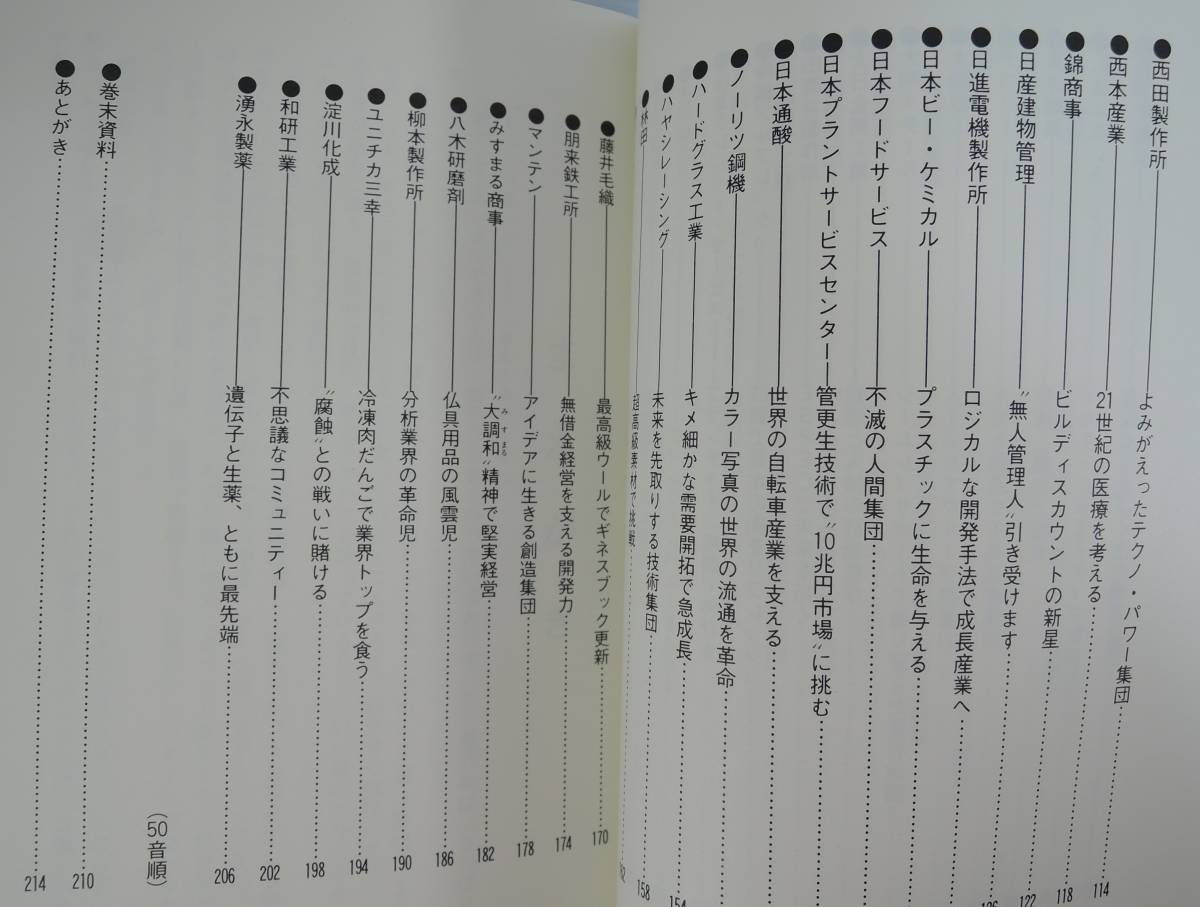 ●西田製作所――よみがえったテクノ・パワー集団……114
●西本産業――21世紀の医療を考える……118
●錦商事――ビルディスカウントの新星……122
●日産建物管理――〝無人管理人〟引き受けます……
●日進電機製作所――ロジカルな開発手法で成長産業へ……
●日本ビー・ケミカル――プラスチックに生命を与える……
●日本フードサービス――不滅の人間集団……
●日本プラントサービスセンター―管更生技術で〝10兆円市場〟に挑む……
●日本通酸――世界の自転車産業を支える……
●ノーリツ鋼機――カラー写真の世界の流通を革命……
●ハードグラス工業――キメ細かな需要開拓で急成長……154
●ハヤシレーシング――未来を先取りする技術集団……158
●林田――超高級素材で挑戦……
●藤井毛織――最高級ウールでギネスブック更新……170
●朋来鉄工所――無借金経営を支える開発力……174
●マンテン――アイデアに生きる創造集団……178
●みすまる商事――〝大調和〟(みすまる)精神で堅実経営……182
●八木研磨剤――仏具用品の風雲児……186
●柳本製作所――分析業界の革命児……190
●ユニチカ三幸――冷凍肉だんごで業界トップを食う……194
●淀川化成――〝腐蝕〟との戦いに賭ける……198
●和研工業――不思議なコミュニティー……202
●湧永製薬――遺伝子と生薬、ともに最先端……206
(50音順)
●巻末資料……210
●あとがき……214